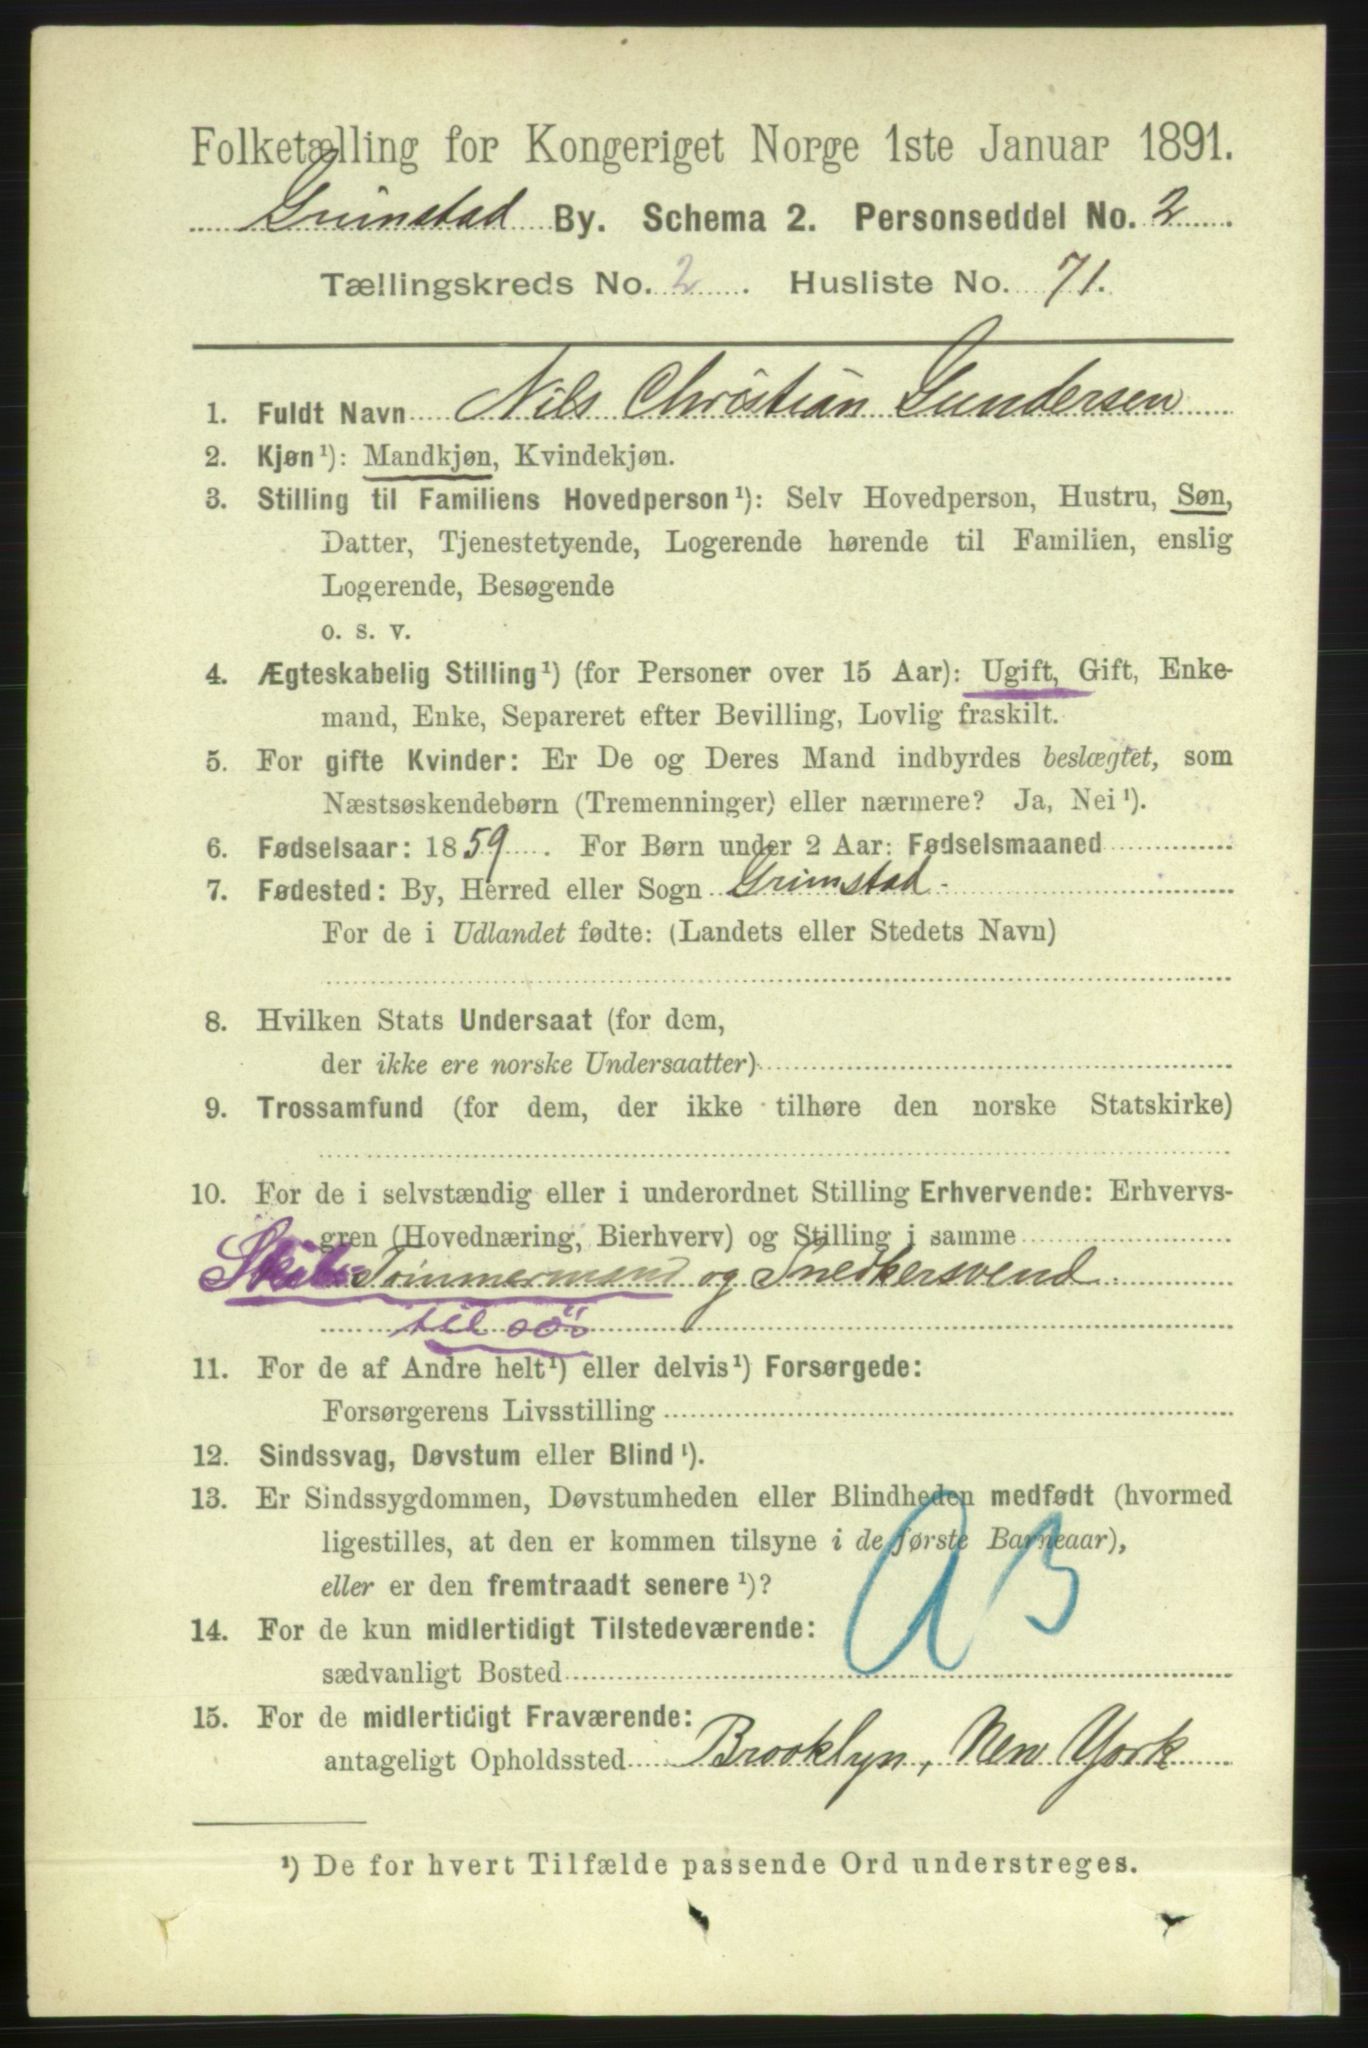 Folketælling for Kongeriget Norge 1ste Januar 1891.
Grimstad By. Schema 2. Personseddel No. 2
Tællingskreds No. 2. Husliste No. 71.
1. Fuldt Navn Nils Christian Gundersen
2. Kjøn¹): Mandkjøn, Kvindekjøn.
3. Stilling til Familiens Hovedperson¹): Selv Hovedperson, Hustru, Søn,
Datter, Tjenestetyende, Logerende hørende til Familien, enslig
Logerende, Besøgende
o. s. v.
4. Ægteskabelig Stilling¹) (for Personer over 15 Aar): Ugift, Gift, Enke-
mand, Enke, Separeret efter Bevilling, Lovlig fraskilt.
5. For gifte Kvinder: Er De og Deres Mand indbyrdes beslægtet, som
Næstsøskendebørn (Tremenninger) eller nærmere? Ja, Nei¹).
6. Fødselsaar: 1859. For Børn under 2 Aar: Fødselsmaaned
7. Fødested: By, Herred eller Sogn Grimstad.
For de i Udlandet fødte: (Landets eller Stedets Navn)
8. Hvilken Stats Undersaat (for dem,
der ikke ere norske Undersaatter)
9. Trossamfund (for dem, der ikke tilhøre den norske Statskirke)
10. For de i selvstændig eller i underordnet Stilling Erhvervende: Erhvervs-
gren (Hovednæring, Bierhverv) og Stilling i samme
Skibs Tömmermand og Snedkersvend.
til sös
11. For de af Andre helt¹) eller delvis¹) Forsørgede:
Forsørgerens Livsstilling
12. Sindssvag, Døvstum eller Blind¹).
13. Er Sindssygdommen, Døvstumheden eller Blindheden medfødt (hvormed
ligestilles, at den er kommen tilsyne i de første Barneaar),
eller er den fremtraadt senere¹)?
14. For de kun midlertidigt Tilstedeværende:
sædvanligt Bosted
15. For de midlertidigt Fraværende:
antageligt Opholdssted Brooklyn, New York
¹) De for hvert Tilfælde passende Ord understreges.